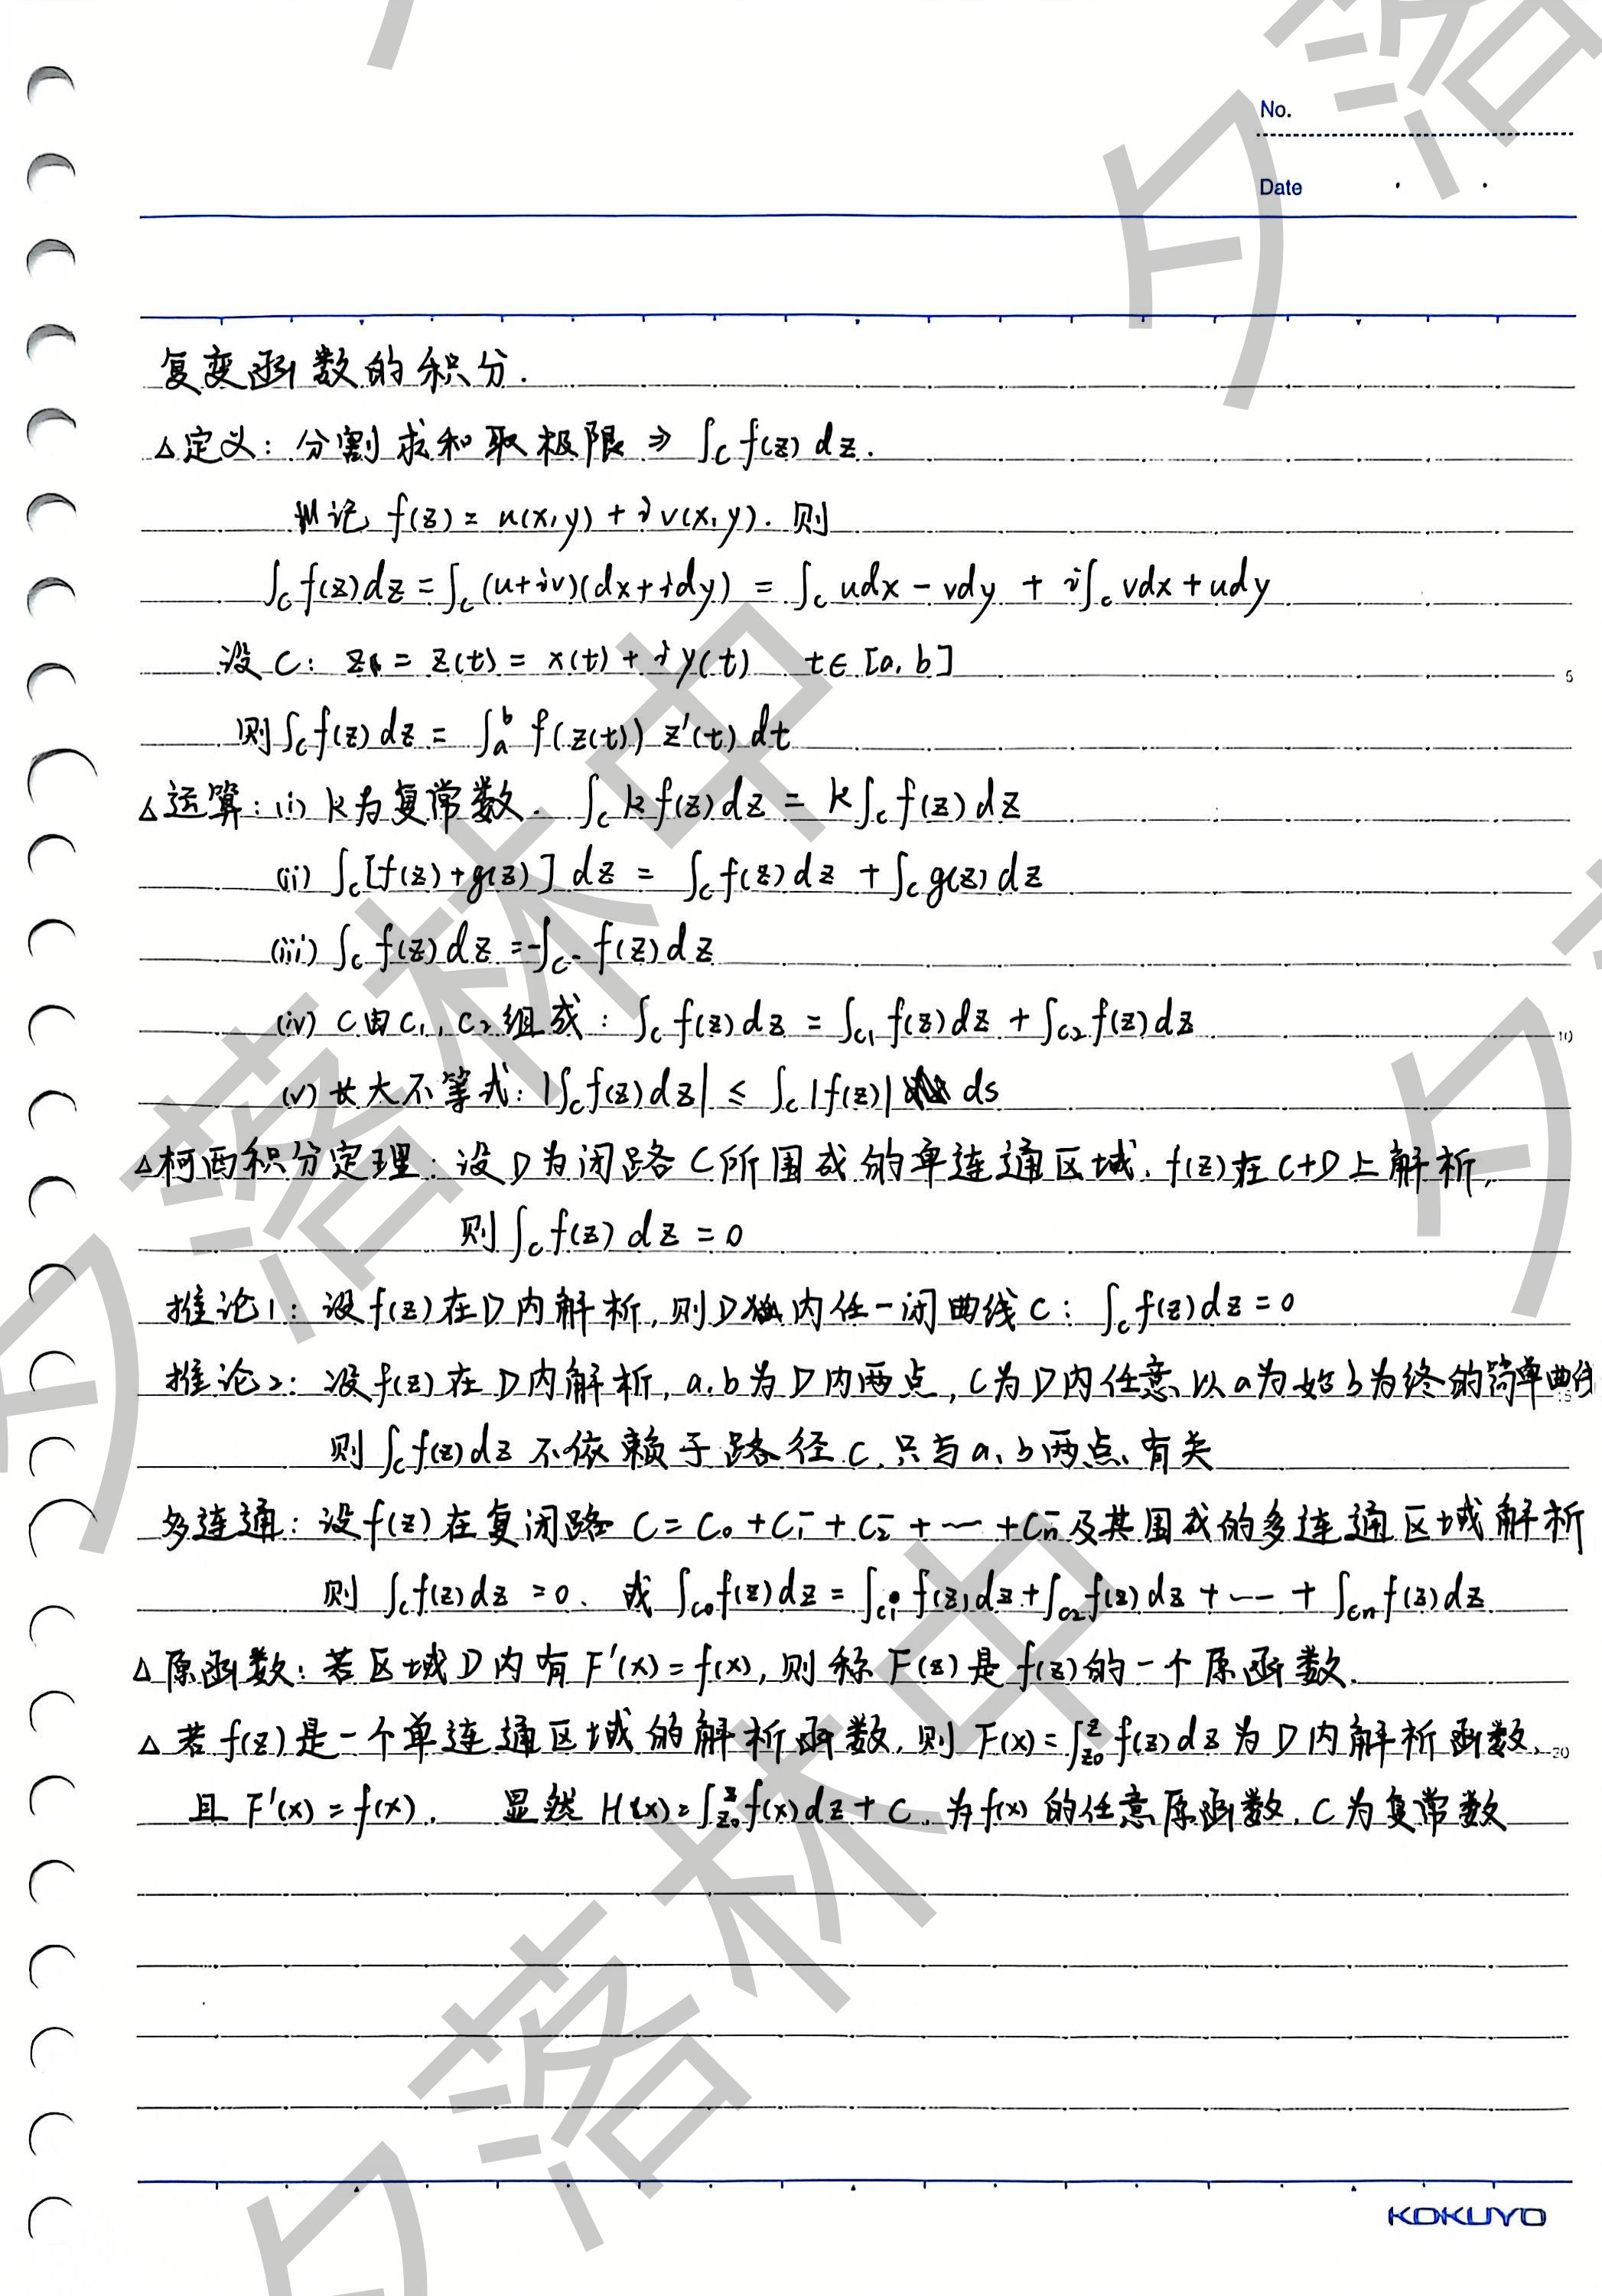 No.
Date
复变函数的积分.
△定义: 分割求和取极限 ⇒ ∫_C f(z) dz.
记 f(z) = u(x,y) + i v(x,y). 则
∫_C f(z)dz = ∫_C (u+iv)(dx+idy) = ∫_C udx - vdy + i∫_C vdx + udy
设 C: z = z(t) = x(t) + i y(t) t∈[a,b]
则 ∫_C f(z) dz = ∫_a^b f(z(t)) z'(t) dt
△运算: (i) k为复常数. ∫_C k f(z) dz = k∫_C f(z) dz
(ii) ∫_C [f(z)+g(z)] dz = ∫_C f(z) dz + ∫_C g(z) dz
(iii) ∫_C f(z) dz = -∫_C- f(z) dz
(iv) C由C₁, C₂组成: ∫_C f(z) dz = ∫_C1 f(z) dz + ∫_C2 f(z) dz
(v) 长大不等式: |∫_C f(z) dz| ≤ ∫_C |f(z)| ds
△柯西积分定理: 设D为闭路C所围成的单连通区域. f(z)在C+D上解析,
则 ∫_C f(z) dz = 0
推论1: 设f(z)在D内解析, 则D内任一闭曲线C: ∫_C f(z)dz = 0
推论2: 设f(z)在D内解析, a.b为D内两点, C为D内任意以a为始b为终的简单曲线
则 ∫_C f(z)dz 不依赖于路径C, 只与a、b两点有关
多连通: 设f(z)在复闭路 C = C₀ + C₁⁻ + C₂⁻ + … + Cₙ⁻ 及其围成的多连通区域解析
则 ∫_C f(z)dz = 0. 或 ∫_C0 f(z)dz = ∫_C1 f(z)dz + ∫_C2 f(z)dz + … + ∫_Cn f(z)dz
△原函数: 若区域D内有F'(x) = f(x), 则称F(z)是f(z)的一个原函数.
△若f(z)是一个单连通区域的解析函数, 则 F(x) = ∫_z0^z f(z)dz 为D内解析函数,
且 F'(x) = f(x). 显然 H(x) = ∫_z0^z f(x)dz + C, 为f(x)的任意原函数, C为复常数
5
10
15
20
KOKUYO
夕落林中
夕落林中
夕落
夕